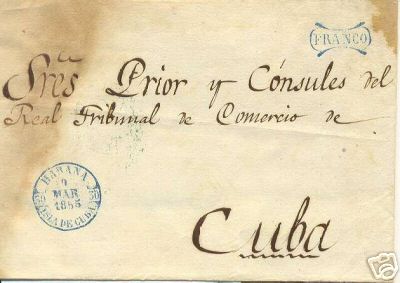 FRANCO
Sres Prior y Cónsules del
Real Tribunal de Comercio de
HABANA
9
MAR
1855
ISLA DE CUBA
Cuba